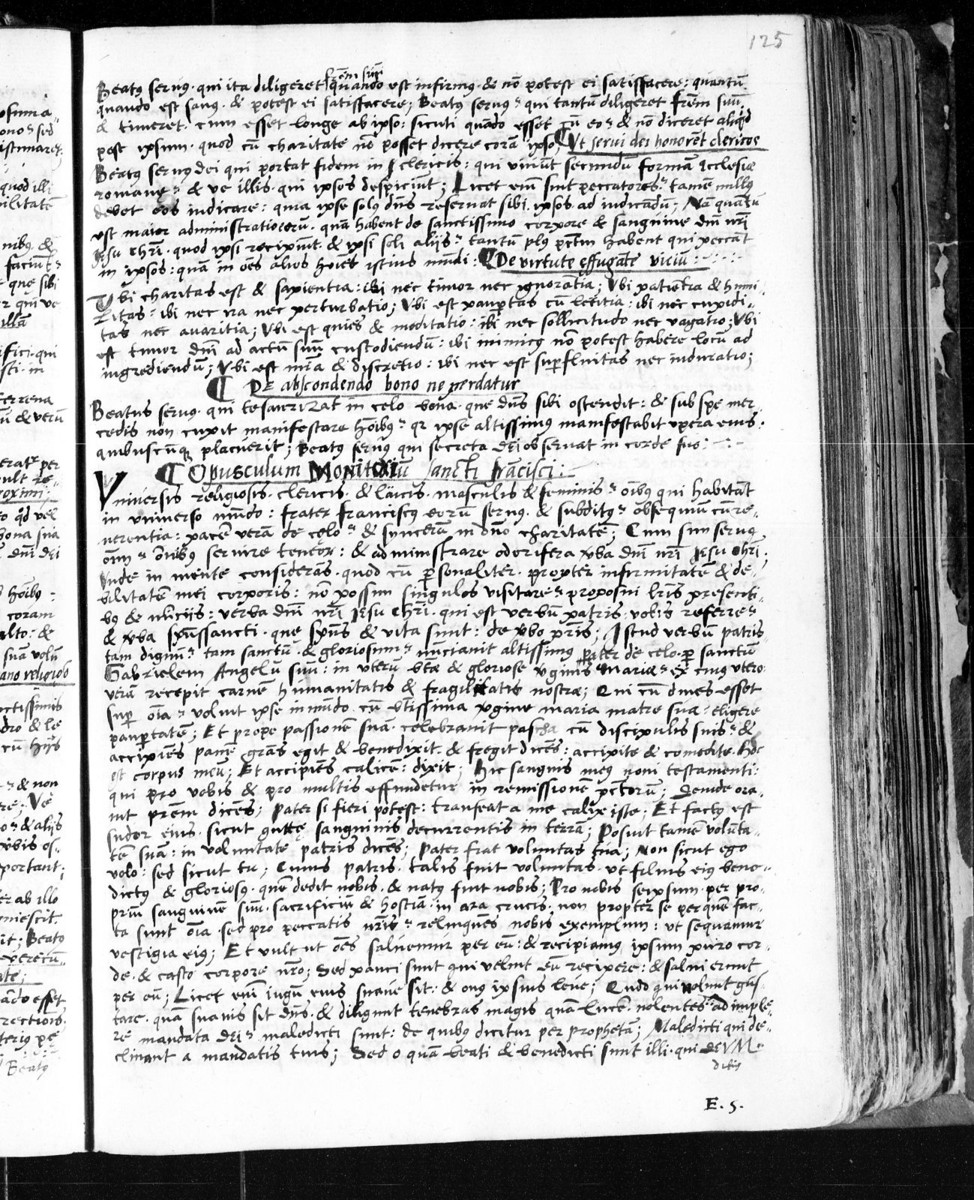 125
Beatꝰ seruꝰ· qui ita diligeret frēm suū quando est infirmꝰ· & nō potest ei satisfacere: quantū
quando est sanꝰ· & potest ei satisfacere; Beatꝰ seruꝰ: qui tantū diligeret frēm suū
& timeret· cum esset longe ab ipso: sicuti quādo esset cū eo: & nō diceret aliqd
post ipsum· quod cū charitate nō posset dicere corā ipso; Ut serui dei honorēt clericos
Beatꝰ seruꝰ dei qui portat fidem in clericis: qui viuūt secundū formam Ecclesiæ
romane: & ve illis· qui ipsos despiciūt; Licet eni sint peccatores: tamē nullꝰ
debet eos iudicare: quia ipse solꝰ dn̄s reseruat sibi ipsos ad iudicādū; Nā quātū
est maior administratio eorū· quā habent de sanctissimo corpore & sanguine dn̄i nr̄i
Jesu chr̄i· quod ipsi recipiūt & ipsi soli alijs: tantū plꝰ pctm̄ habent qui peccāt
in ipsos: quā in oēs alios hoīes istius mūdi: De virtute effugāte viciū:
Ubi charitas est & sapientia: ibi nec timor nec ignorātia; Ubi patiētia & humi-
litas: ibi nec ira nec perturbatio; Ubi est paupertas cū letitia: ibi nec cupidi-
tas nec auaritia; Ubi est quies & meditatio: ibi nec sollicitudo nec vagatio; Ubi
est timor dn̄i ad actriū suū custodiendū: ibi inimicꝰ nō potest habere locū ad
ingrediendū; Ubi est mīa & discretio: ibi nec est suꝑfluitas nec induratio;
De abscondendo bono ne perdatur
Beatus seruꝰ· qui tesaurizat in celo bona· que dn̄s sibi ostendit: & sub spe mer
cedis non cupit manifestare hoībꝰ: qr ipse altissimꝰ manifestabit opera eius·
quibuscūq placuerit; Beatꝰ seruꝰ qui secreta dei obseruat in corde suo:
Opusculum Monitoriū Sancti frācisci:
Universis religiosis· clericis & laicis· masculis & feminis: oībꝰ qui habitāt
in vniuerso mūdo: frater franciscꝰ eorū seruꝰ· & subditꝰ: obsequiū cū re-
uerentia: pacē verā de celo: & synceram in dn̄o charitatē; Cum sim seruꝰ
oīm: oībus seruire teneor: & administrare odorifera v̄ba dn̄i nr̄i Jesu Chr̄i·
Unde in mente considerās· quod cū ꝑsonaliter· propter infirmitatē & de-
bilitatē mei corporis: nō possim singulos visitare: proposui lr̄is presenti-
bꝰ & nūcijs: verba dn̄i nr̄i Jesu chr̄i· qui est verbū patris· vobis referre:
& v̄ba sp̄ussancti· que sp̄ūs & vita sunt: de v̄bo pr̄is; Istud verbū patris
tam dignū: tam sanctū & gloriosum: nūciauit altissimꝰ pater de celo· ꝑ sanctū
Gabrielem Angelū suū: in uterū bt̄æ & gloriose v̄ginis Marie: ex cuiꝰ vtero
verā recepit carnē humanitatis & fragilitatis nostræ; Qui cū diues esset
suꝑ oīa: voluit ipse in mūdo· cū btissima v̄gine maria matre sua: eligere
pauꝑtatē; Et prope passionē suā: celebrauit pascha cū discipulis suis: &
accipiēs panē gr̄as egit & benedixit· & fregit dicēs: accipite & comedite· Hoc
est corpus meū; Et accipiēs calicē: dixit; Hic sanguis meꝰ noui testamenti:
qui pro vobis & pro multis effundetur in remissionē pctorū; Deinde ora-
uit prēm dicēs; Pater si fieri potest: transeat a me calix iste; Et factꝰ est
sudor eius· sicut guttæ sanguinis decurrentis in terrā; Posuit tamē volūta-
tē suā: in voluntate patris dicēs; Pater fiat voluntas tua; Non sicut ego
volo: sed sicut tu; Cuius patris· talis fuit voluntas· ut filius eiꝰ bene-
dictꝰ & gloriosꝰ· quē dedit nobis· & natꝰ fuit nobis; Pro nobis seipsum· per pro-
priū sanguinē suū· sacrificiū & hostiā: in ara crucis· non propter se per quē fac-
ta sunt oīa· sed pro peccatis nr̄is: relinquēs nobis exemplum: ut sequamur
vestigia eiꝰ; Et vult ut oēs saluemur per eū: & recipiamꝰ ipsum puro cor-
de· & casto corpore nr̄o; Sed pauci sunt qui velint eū recipere: & salui erunt
per eū; Licet eni iugū eius suaue sit: & onꝰ ipsius leue; Quod qui nolunt gus
tare· quā suauis sit dn̄s· & diligunt tenebras magis quā lucē· nolentes ad imple-
re mandata dei: maledicti sunt: de quibꝰ dicitur per prophetā; Maledicti qui de-
clinant a mandatis tuis; Sed o quā beati & benedicti sunt illi· qui deum
E. 5.